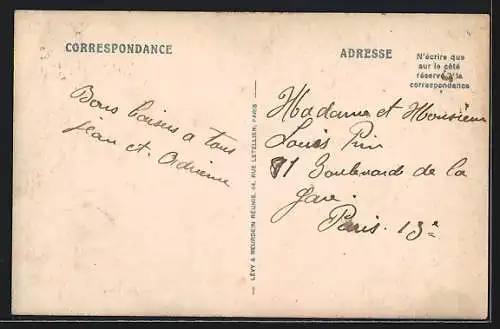 CORRESPONDANCE
ADRESSE
N'écrire que
sur le côté
réservé à la
correspondance
Bons baisers a tous
Jean et Adrienne
Madame et Monsieur
Louis Prin
81 Boulevard de la
Gare.
Paris. 13e
LÉVY & NEURDEIN RÉUNIS, 44, RUE LETELLIER, PARIS